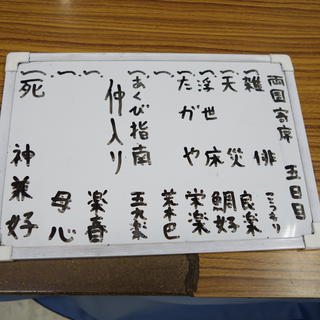 両國寄席 五日目
一、雑俳
一、天災 良楽
一、浮世床 鯛好
一、たがや 栄楽
一、 荒木巴
一、あくび指南 五九楽
仲入り
一、 楽春
一、 母心
一、死神 兼好